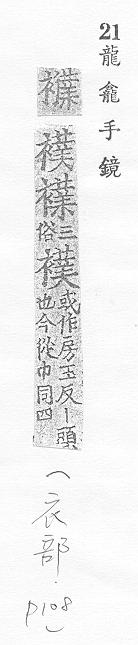 21 龍龕手鏡
襆三俗襆或作房玉反丨頭
也今從巾同四
（衣部．
p108）